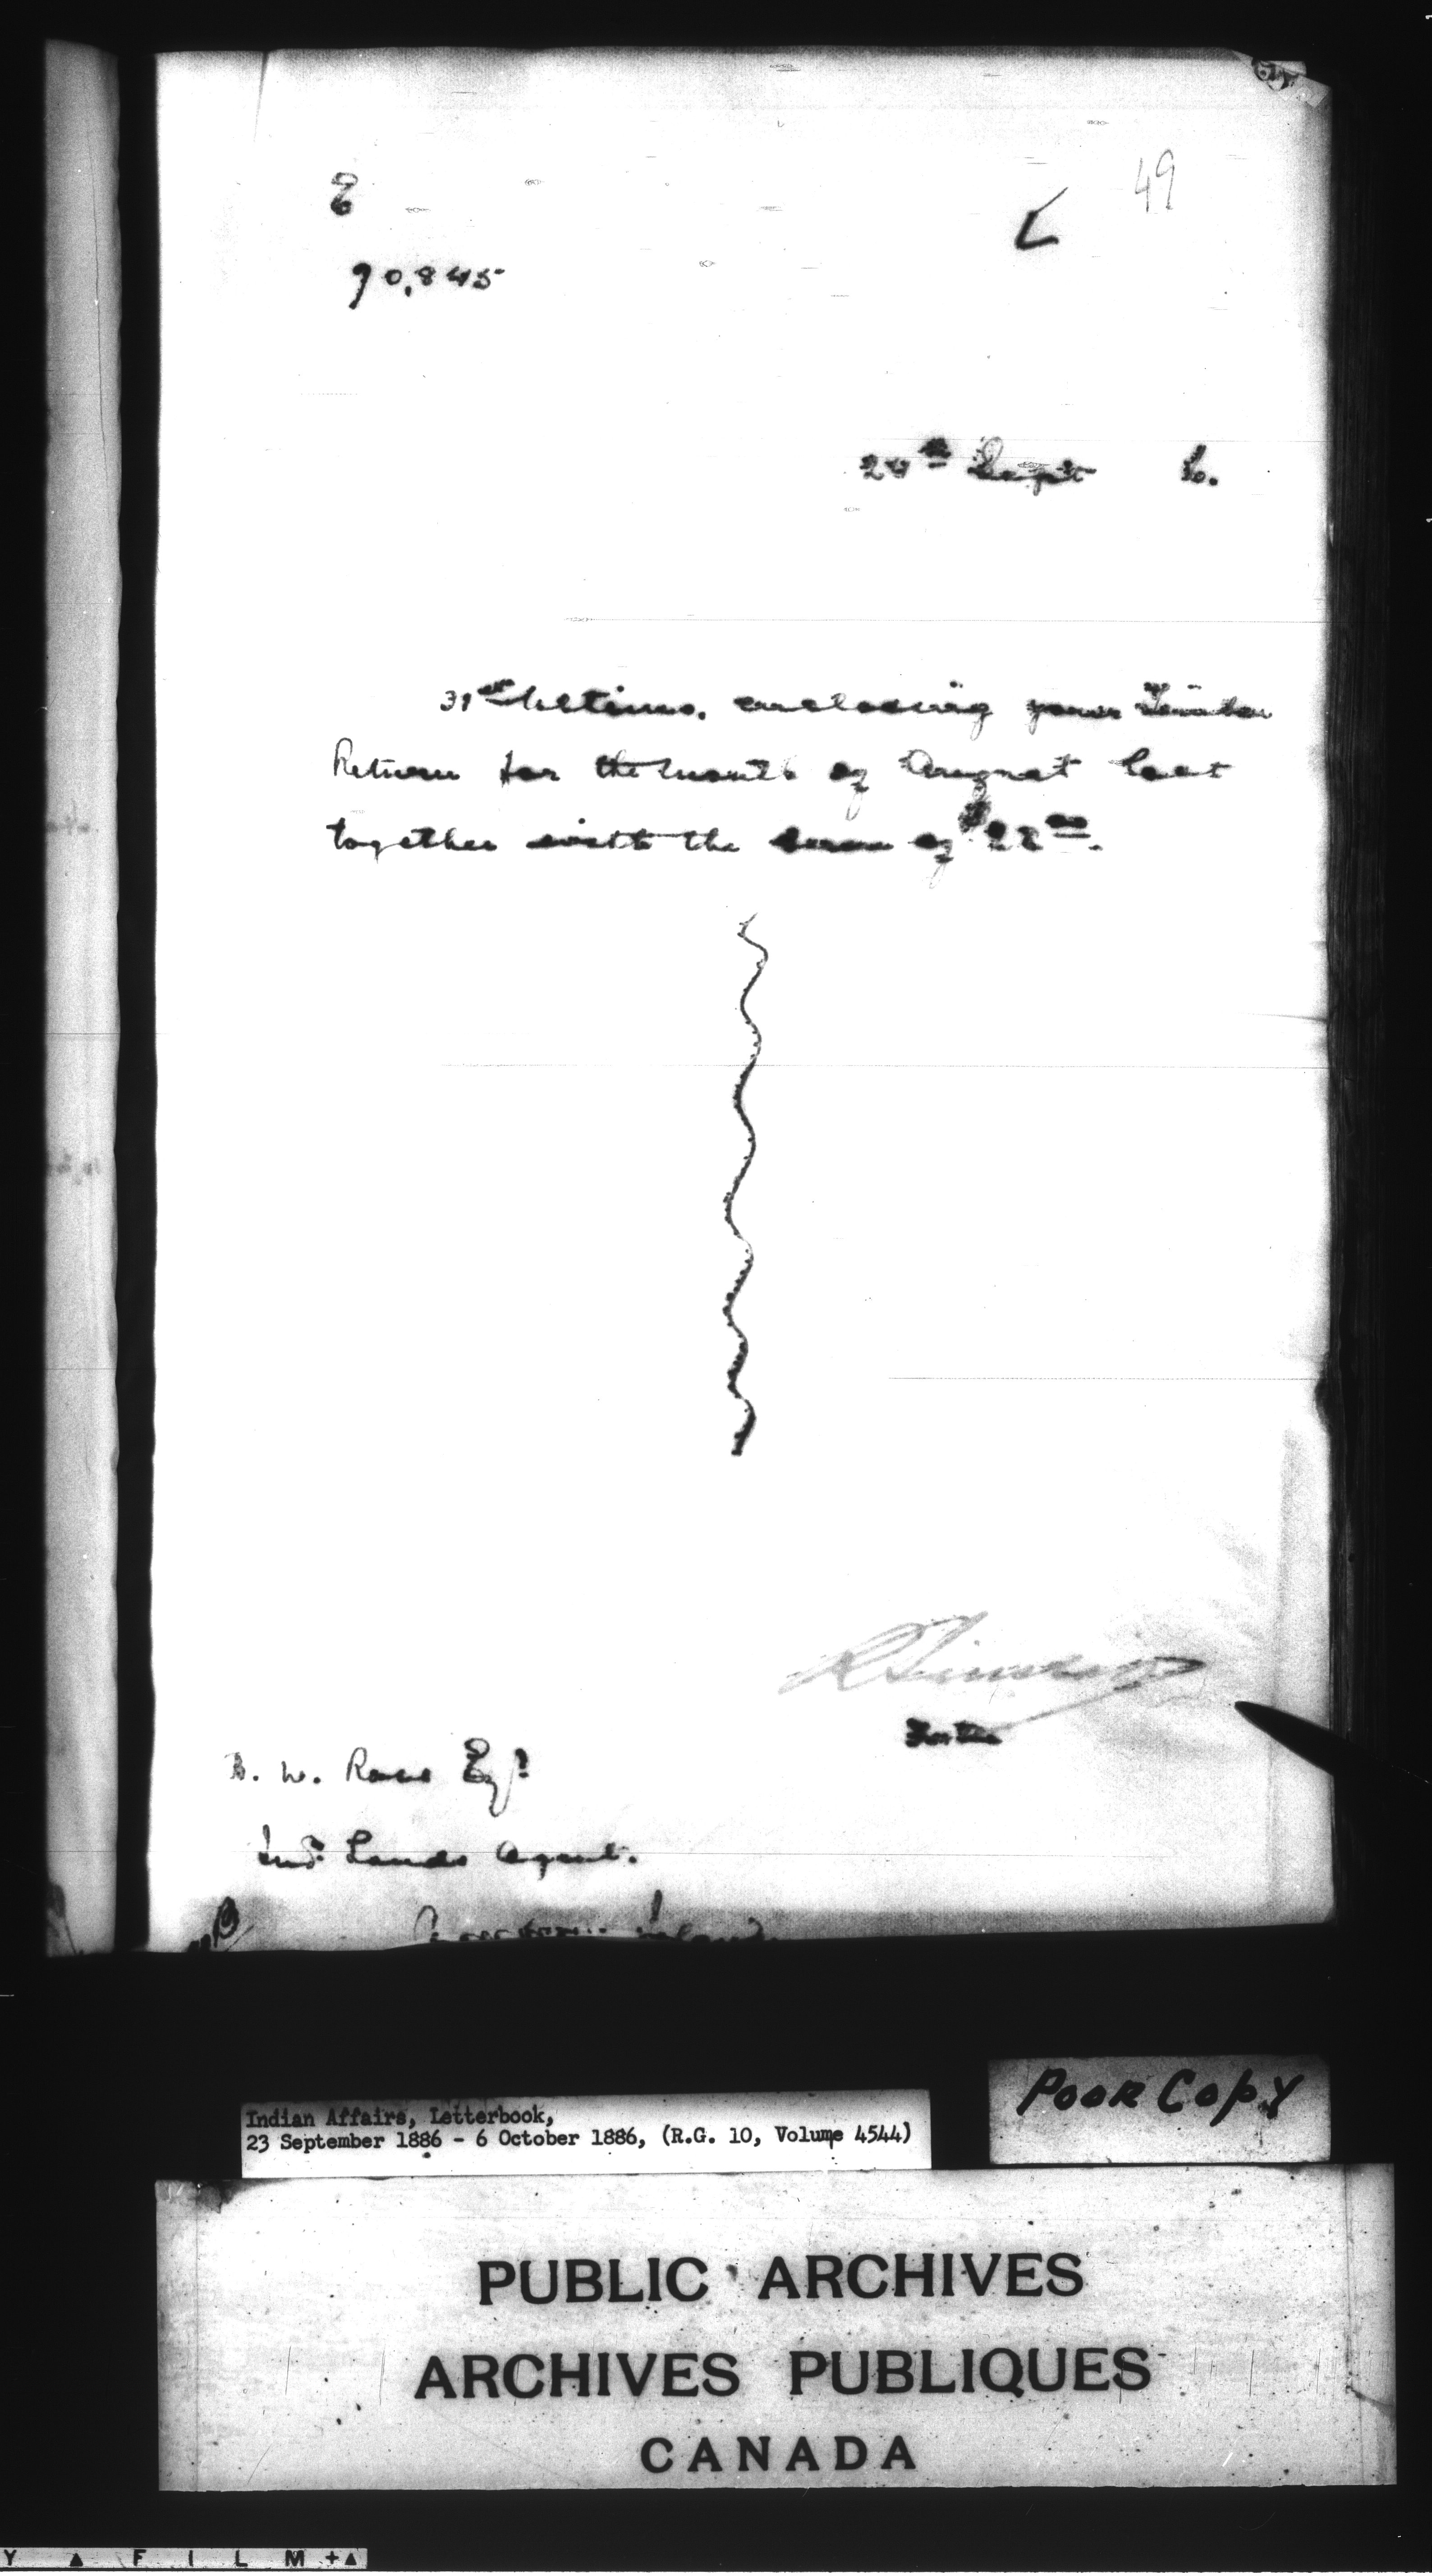 49
E
L
90,845
24th Sept 6.
31st Ultimo. enclosing your Timber
Return for the month of August last
together with the sum of $22 00.
For the
B. W. Ross Esqr
Ind. Lands Agent.
Island
Poor Copy
Indian Affairs, Letterbook,
23 September 1886 - 6 October 1886, (R.G. 10, Volume 4544)
PUBLIC ARCHIVES
ARCHIVES PUBLIQUES
CANADA
Y ▲ F I L M + ▲